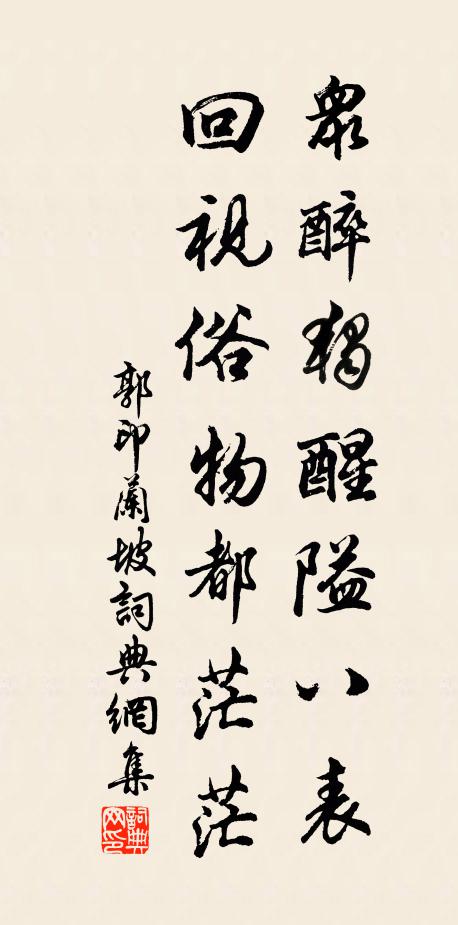 眾醉獨醒隘八表
回視俗物都茫茫
郭印蘭坡詞典網集
詞典网印